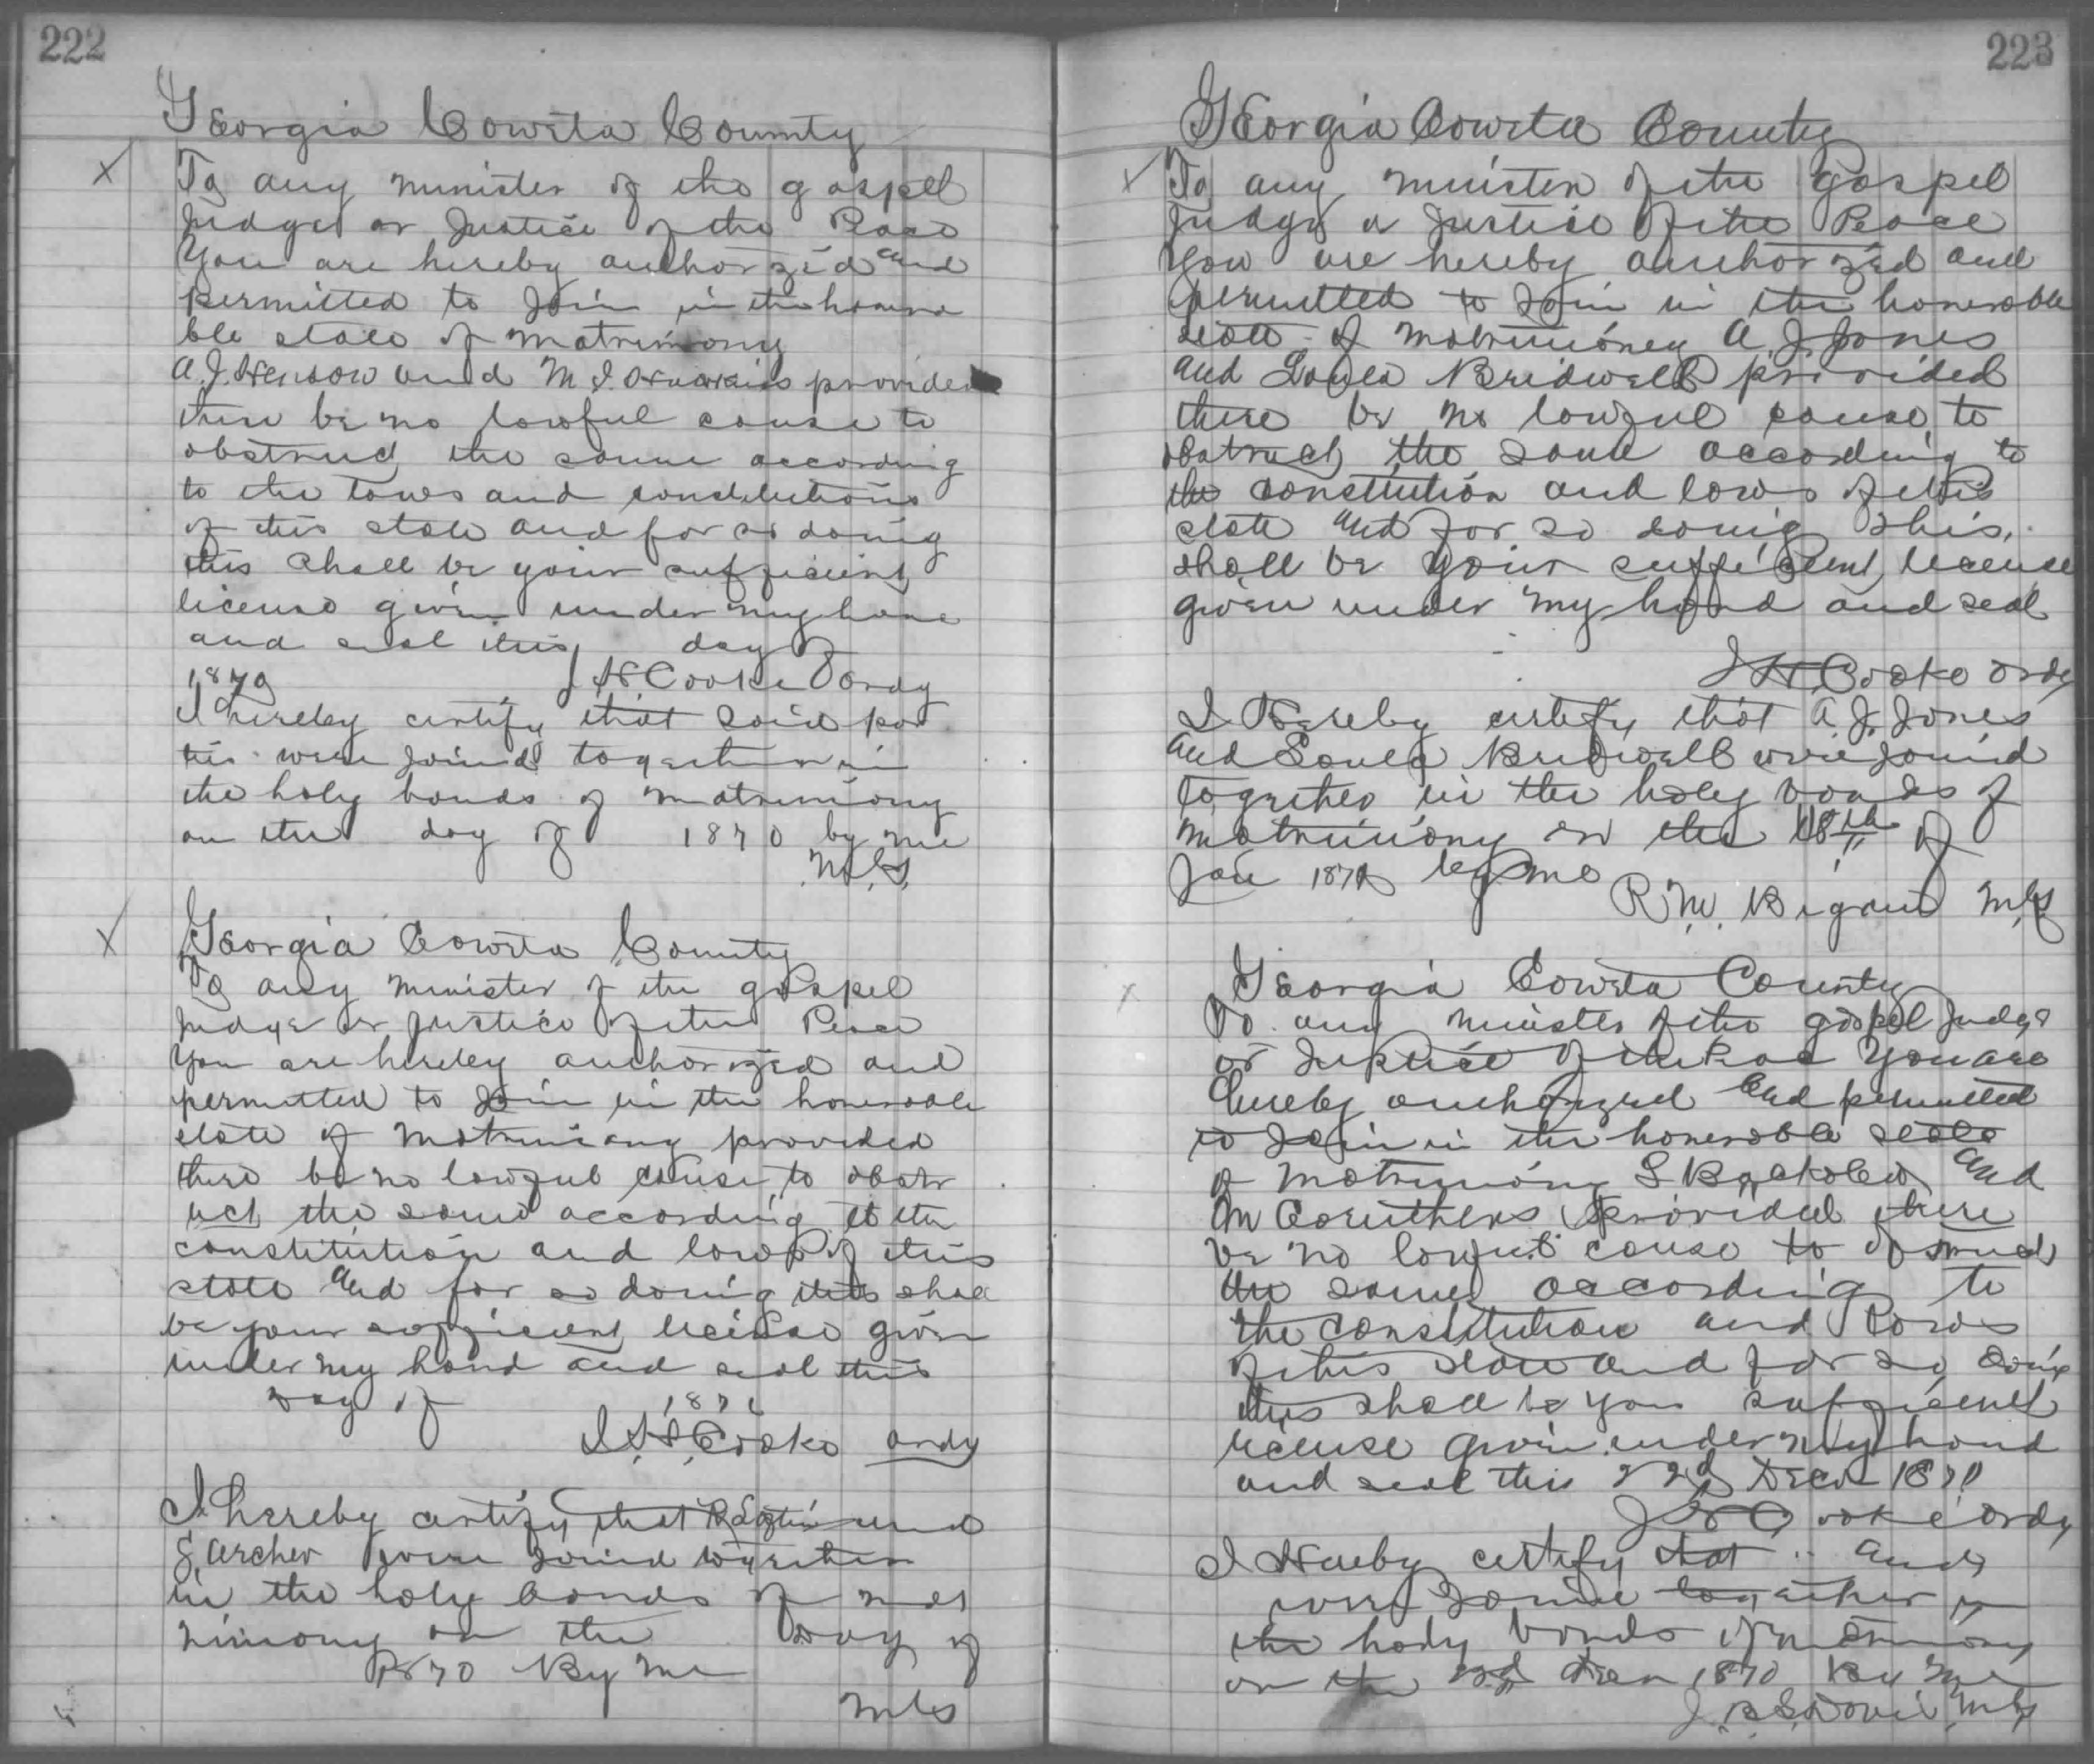 222
Georgia Coweta County
To any minister of the gospel
Judge or Justice of the Peace
You are hereby authorized and
permitted to Join in the honora
ble state of matrimony
A. J. Henson and M. J. provided
there be no lawful cause to
obstruct the same according
to the laws and constitutions
of this state and for so doing
this shall be your sufficient
license given under my hand
and seal this day of
1870 J H Cooke Ordy
I hereby certify that said par
ties were joined together in
the holy bonds of matrimony
on the day of 1870 by me
M.G.
Georgia Coweta County
To any minister of the gospel
Judge or Justice of the Peace
You are hereby authorized and
permitted to Join in the honorable
state of matrimony provided
there be no lawful cause to obstr
uct the same according to the
constitution and laws of this
state and for so doing this shall
be your sufficient license given
under my hand and seal this
day of 187
J. H. Cooke ordy
I hereby certify that R and
S Archer were joined together
in the holy bonds of mat
rimony on the Day of
1870 By me
MG
223
Georgia Coweta County
To any minister of the Gospel
Judge or Justice of the Peace
You are hereby authorized and
permitted to Join in the honorable
state of matrimony A. J. Jones
and Louea Bridwell provided
there be no lawful cause to
obstruct the same according to
the constitution and laws of this
state and for so doing this
shall be your sufficient license
given under my hand and seal
J H Cooke Ordy
I Hereby certify that A. J. Jones
and Louea Bridwell were joined
together in the holy bonds of
matrimony on the 18th of
Jan 1870 by me
R. W. MG
Georgia Coweta County
To any minister of the gospel Judge
or Justice of the Peace You are
hereby authorized and permitted
to Join in the honorable state
of matrimony S and
M Coruthers provided there
be no lawful cause to obstruct
the same according to
the constitution and laws
of this state and for so doing
this shall be your sufficient
license given under my hand
and seal this 22d Decr 1870
J H Cooke Ordy
I Hereby certify that " and
were Joined together in
the holy bonds of matrimony
on the 1870 By me
J. B. S. Davis MG